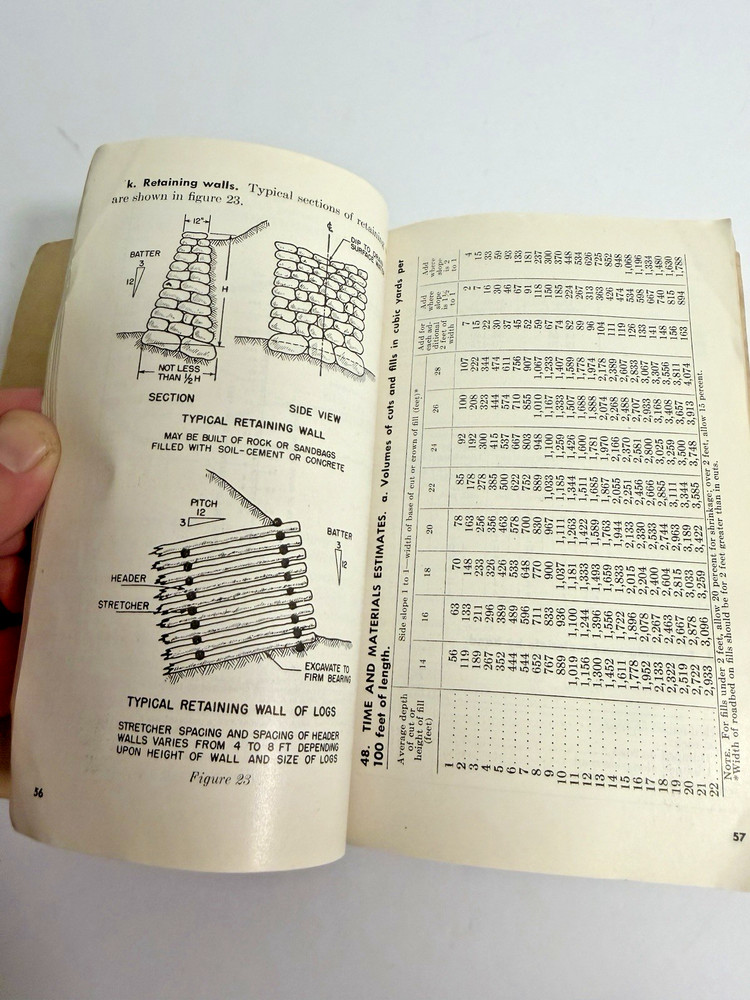 k. Retaining walls. Typical sections of retaining
are shown in figure 23.
12"
BATTER
3
12
H
NOT LESS
THAN ½H
℄
DIP TO
SURFACE
SECTION
SIDE VIEW
TYPICAL RETAINING WALL
MAY BE BUILT OF ROCK OR SANDBAGS
FILLED WITH SOIL-CEMENT OR CONCRETE
PITCH
12
3
BATTER
3
12
HEADER
STRETCHER
EXCAVATE TO
FIRM BEARING
TYPICAL RETAINING WALL OF LOGS
STRETCHER SPACING AND SPACING OF HEADER
WALLS VARIES FROM 4 TO 8 FT DEPENDING
UPON HEIGHT OF WALL AND SIZE OF LOGS
Figure 23
56
48. TIME AND MATERIALS ESTIMATES. a. Volumes of cuts and fills in cubic yards per
100 feet of length.
Average depth of cut or height of fill (feet)
Side slope 1 to 1—width of base of cut or crown of fill (feet)*
Add for each additional 2 feet of width
Add where slope is 1½ to 1
Add where slope is 2 to 1
14 16 18 20 22 24 26 28
1 56 63 70 78 85 92 100 107 7 2 4
2 119 133 148 163 178 192 208 222 15 7 15
3 189 211 233 256 278 300 323 344 22 16 33
4 267 296 326 356 385 415 444 474 30 30 59
5 352 389 426 463 500 537 574 611 37 46 93
6 444 489 533 578 622 667 710 756 45 67 133
7 544 596 648 700 752 803 855 907 52 91 181
8 652 711 770 830 889 948 1,010 1,067 59 118 237
9 767 833 900 967 1,033 1,100 1,167 1,233 67 150 300
10 889 936 1,037 1,111 1,185 1,259 1,333 1,407 74 185 370
11 1,019 1,100 1,181 1,263 1,344 1,426 1,507 1,589 82 224 448
12 1,156 1,244 1,333 1,422 1,511 1,600 1,688 1,778 89 267 534
13 1,300 1,396 1,493 1,589 1,685 1,781 1,888 1,974 96 313 626
14 1,452 1,556 1,659 1,763 1,867 1,970 2,074 2,178 104 363 725
15 1,611 1,722 1,833 1,944 2,055 2,166 2,268 2,389 111 426 852
16 1,778 1,896 2,015 2,133 2,251 2,370 2,488 2,607 119 474 948
17 1,952 2,078 2,204 2,330 2,456 2,581 2,707 2,833 126 534 1,068
18 2,133 2,267 2,400 2,533 2,666 2,800 2,933 3,067 133 598 1,196
19 2,322 2,463 2,604 2,744 2,885 3,025 3,168 3,307 141 667 1,334
20 2,519 2,667 2,815 2,963 3,111 3,259 3,408 3,556 148 740 1,480
21 2,722 2,878 3,033 3,189 3,344 3,500 3,657 3,811 156 815 1,630
22 2,933 3,096 3,259 3,422 3,585 3,748 3,913 4,074 163 894 1,788
NOTE. For fills under 2 feet, allow 20 percent for shrinkage; over 2 feet, allow 15 percent.
*Width of roadbed on fills should be for 2 feet greater than in cuts.
57